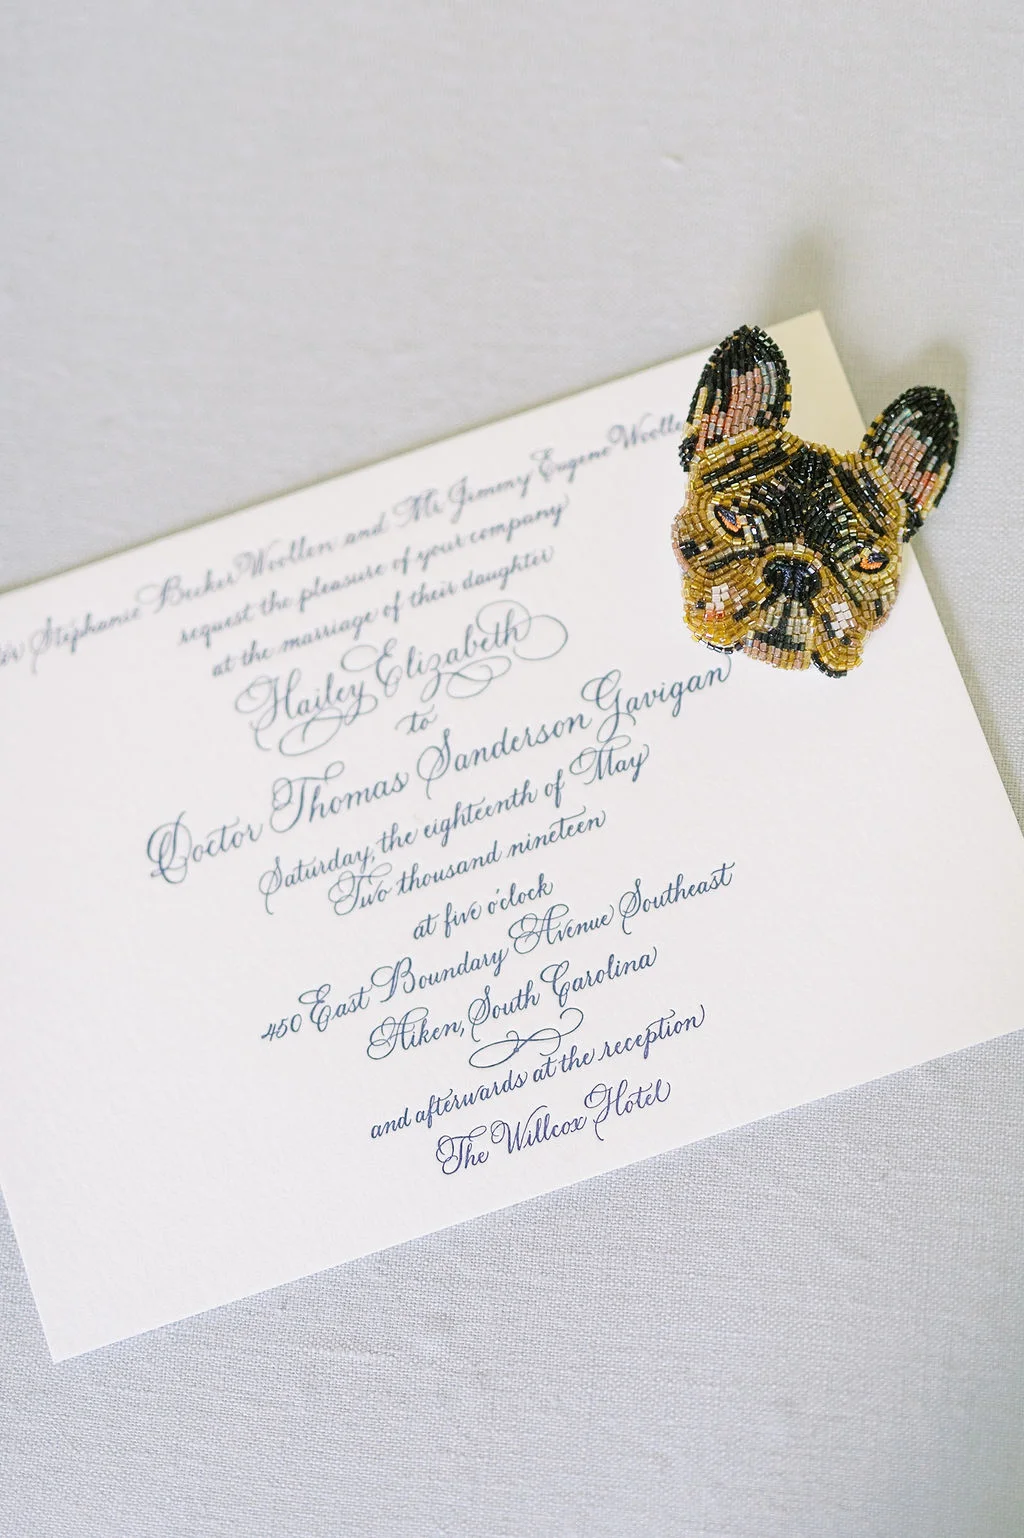 Stephanie Becker Woollen and Mr. Jimmy Eugene
request the pleasure of your company
at the marriage of their daughter
Hailey Elizabeth
to
Doctor Thomas Sanderson Gavigan
Saturday, the eighteenth of May
Two thousand nineteen
at five o'clock
450 East Boundary Avenue Southeast
Aiken, South Carolina
and afterwards at the reception
The Willcox Hotel